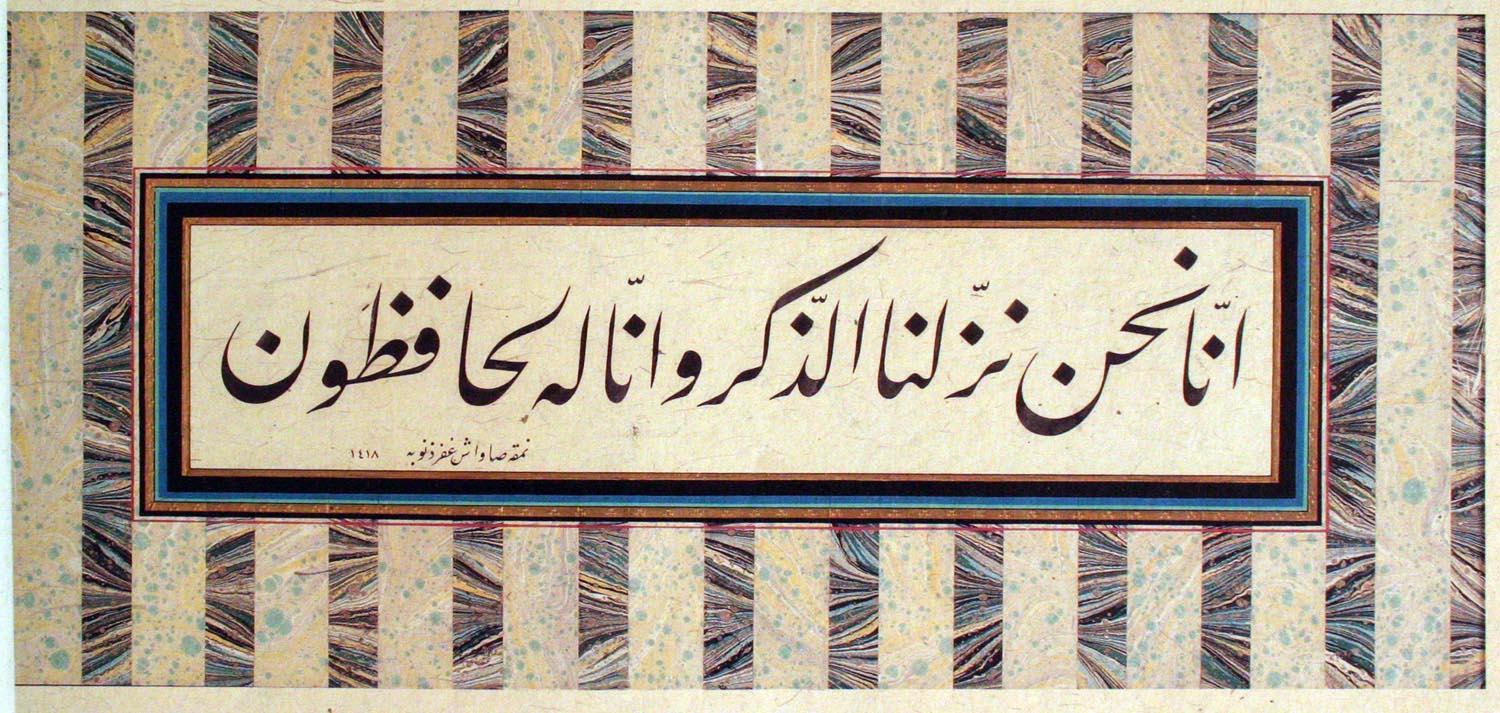 انّا نحن نزّلنا الذّكر و انّا له لحافظون
نمقه صاواش غفر ذنوبه ١٤١٨